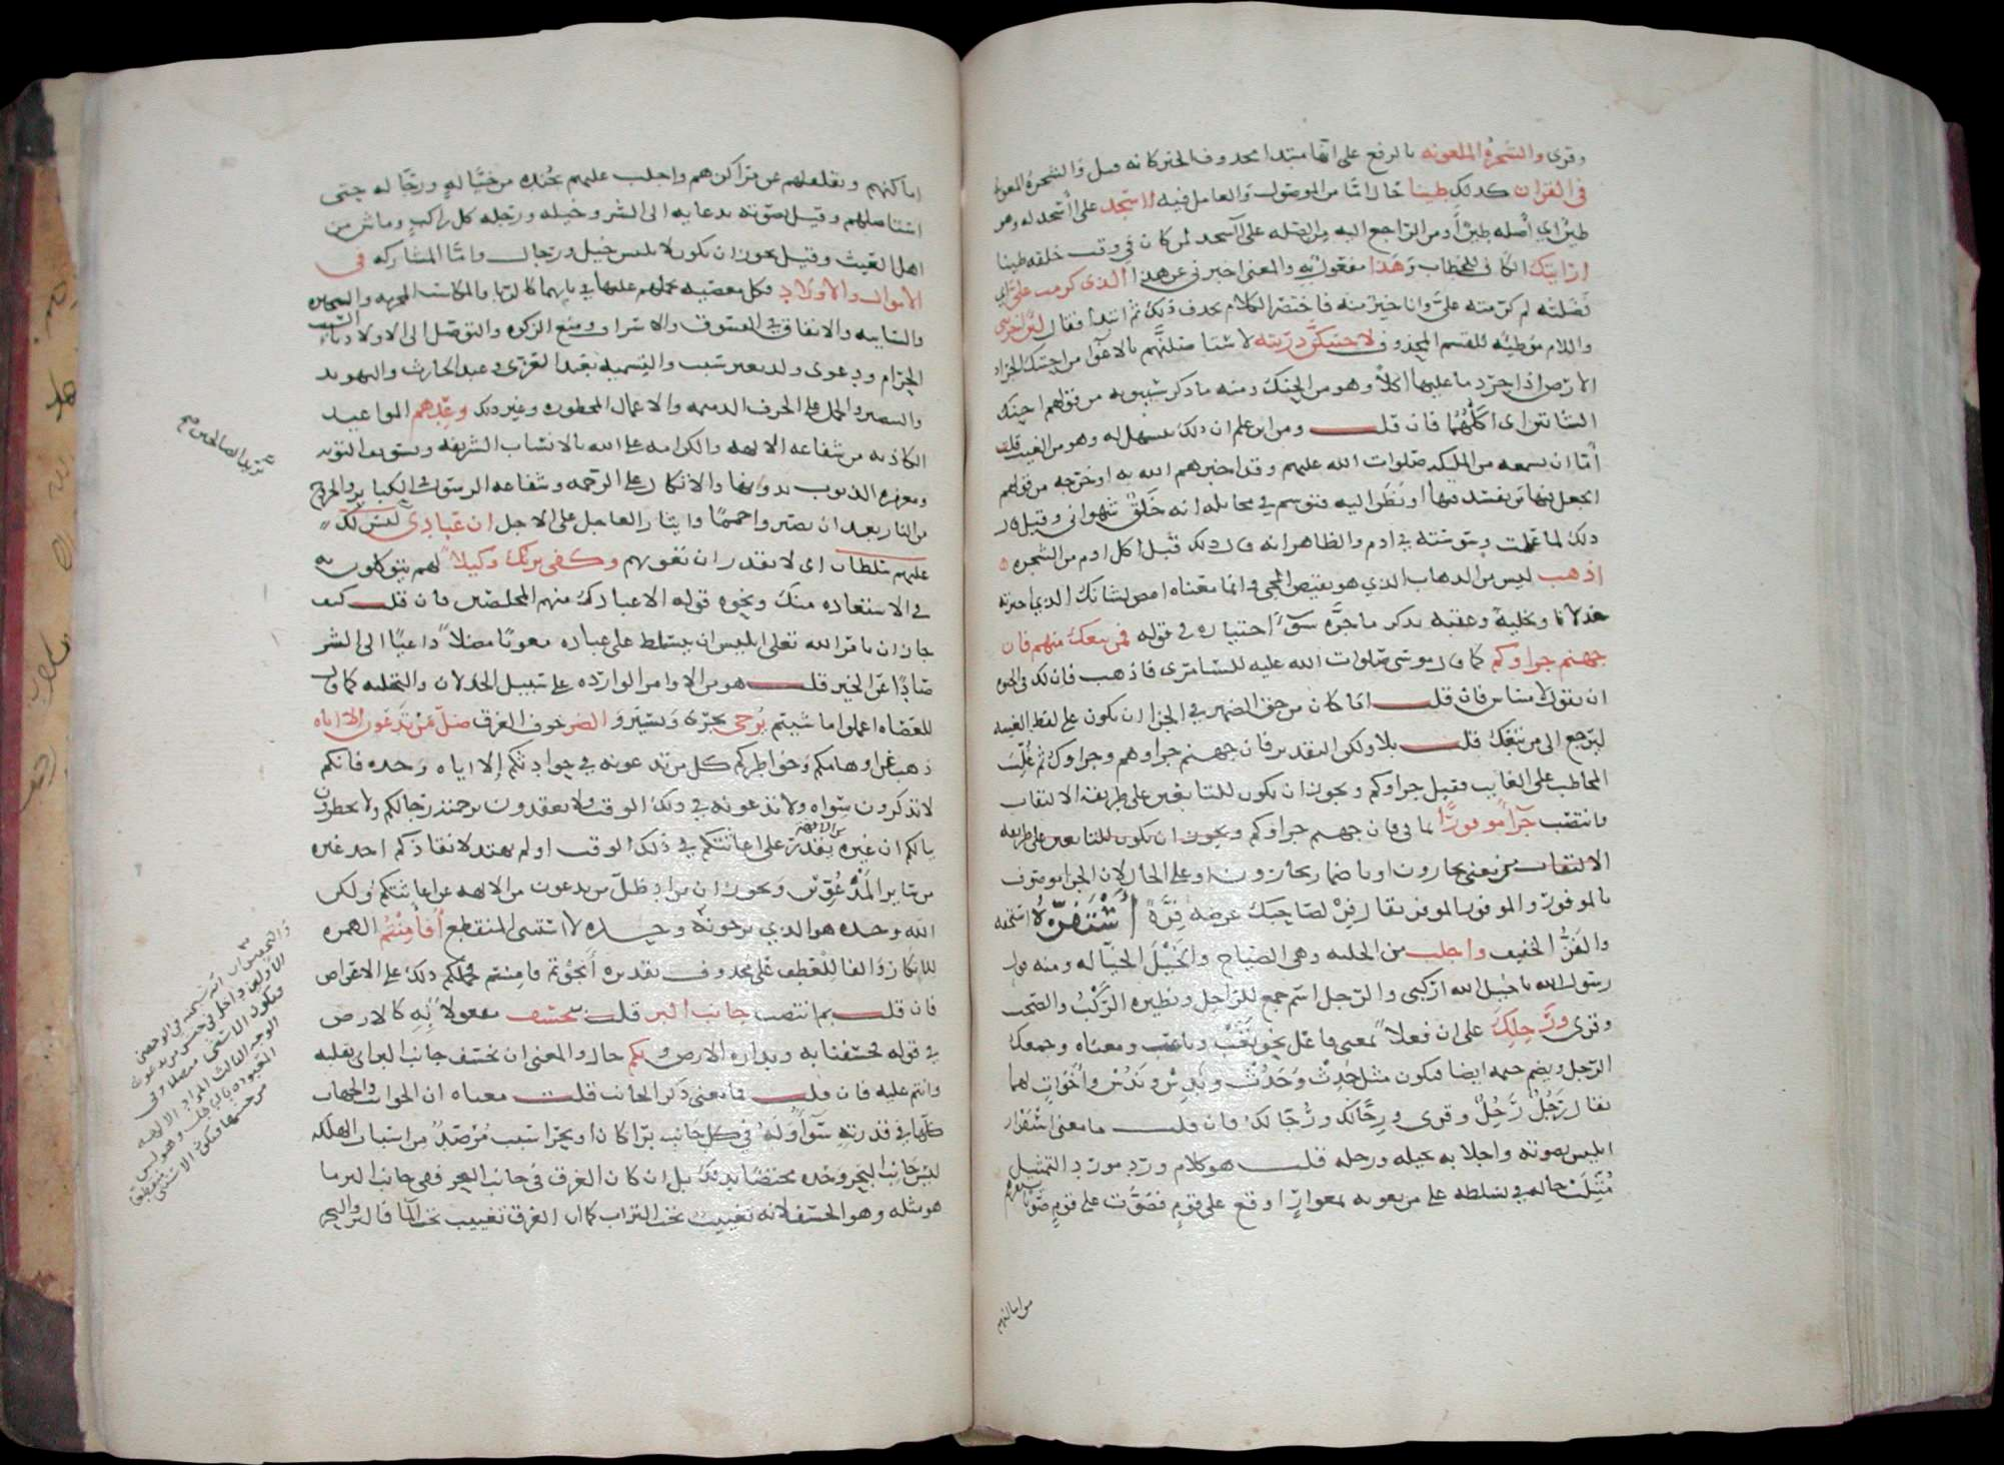 وقرى والشجرة الملعونه بالرفع على انها مبتدا محذوف الخبر كانه قيل والشجرة الملعونة
في القران كذلك طينا حال اما من الموصول والعامل فيه ااسجد على ااسجد له وهو
طين اي اصله طين او من الراجع اليه من الصله على ااسجد لمن كان في وقت خلقه طينا
ارايتك الكاف للخطاب وهذا مفعول به والمعنى اخبرني عن هذا الذي كرمت علي اي
فضلته لم كرمته علي وانا خير منه فاختصر الكلام بحذف ذلك ثم ابتدا فقال لئن اخرتني
واللام موطئه للقسم المحذوف لاحتنكن ذريته لاستاصلنهم بالاغوا من احتنك الجراد
الارض اذا جرد ما عليها اكلا وهو من الحنك ومنه ما ذكر سيبويه من قولهم احنك
الشاتين اى اكلهما فان قلت ومن اين علم ان ذلك يتسهل له وهو من الغيب قلت
اما ان سمعه من المليكه صلوات الله عليهم وقد اخبرهم الله به او خرجه من قولهم
اتجعل فيها من يفسد فيها او نظر اليه فتوسم في مخايله انه خلق شهواني وقيل قال
ذلك لما عملت وسوسته في ادم والظاهر انه قال ذلك قبل اكل ادم من الشجره
اذهب ليس من الذهاب الذي هو نقيض المجي وانما معناه امض لشانك الذي اخترته
خذلانا وتخلية وعقبه بذكر ما جره سوء اختياره في قوله فمن تبعك منهم فان
جهنم جزاوكم كما قال موسى صلوات الله عليه للسامرى فاذهب فان لك في الحيوه
ان تقول لا مساس فان قلت اما كان من حق الضمير في الجزا ان يكون على لفظ الغيبه
ليرجع الى من تبعك قلت بلا ولكن التقدير فان جهنم جزاوهم وجزاوك ثم غلب
المخاطب على الغايب فقيل جزاوكم ويجوز ان يكون للتابعين على طريقه الالتفات
وانتصب جزآ موفورا بما في فان جهنم جزاوكم ويجوز ان يكون للتابعين على طريقه
الالتفات من معنى تجازون او باضمار تجازون او على الحال لان الجزا موصوف
بالموفور والموفور الموفر يقال فر لصاحبك عرضه فرة استفزه استخفه
والفز الخفيف واجلب من الجلبه وهي الصياح والخيل الخيالة ومنه قول
رسول الله يا خيل الله اركبي والرجل اسم جمع للراجل ونظيره الركب والصحب
وقرى ورجلك على ان فعلا بمعنى فاعل نحو تعب وتاعب ومعناه وجمعك
الرجل وبضم جيمه ايضا فيكون مثل حدث وحدث وندس وندس واخوات لهما
يقال رجل رجل وقرى ورجالك ورجالك فان قلت ما معنى استفزاز
ابليس بصوته واجلابه بخيله ورجله قلت هو كلام ورد مورد التمثيل
مثلت حاله في تسلطه على من يغويه بمغوار اوقع على قوم فصوت عليهم صوتا
من اماكنهم
اماكنهم وتقلقهم عن مراكزهم واجلب عليهم بجنده من خيالة ورجالة حتى
استاصلهم وقيل بصوته بدعايه الى الشر وخيله ورجله كل راكب وماش من
اهل العيث وقيل يجوز ان يكون لابليس خيل ورجال واما المشاركه في
الاموال والاولاد فكل معصيه يحملهم عليها في بابهما كالربا والمكاسب المحرمه والبحيره
والسايبه والانفاق في الفسوق والاسراف ومنع الزكوه والتوصل الى الاولاد بالسبب
الحرام ودعوى ولد بغير سبب والتسميه بعبد العزى وعبد الحارث والتهويد
والتنصير والحمل على الحرف الذميمه والاعمال المحظوره وغير ذلك وعدهم المواعيد
الكاذبه من شفاعه الالهه والكرامه على الله بالانساب الشريفه وتسويف التوبه
ومغفره الذنوب بدونها والاتكال على الرحمه وشفاعه الرسول في الكباير والخروج
من النار بعد ان يصيروا حمما وايثار العاجل على الاجل ان عبادي ليس لك
عليهم سلطان اى لا تقدر ان تغويهم وكفى بربك وكيلا لهم يتوكلون به
في الاستعاذه منك ونحوه قوله الا عبادك منهم المخلصين فان قلت كيف
جاز ان يامر الله تعلى ابليس ان يتسلط على عباده مغويا مضلا داعيا الى الشر
صادا عن الخير قلت هو من الاوامر الوارده على سبيل الخذلان والتخليه كما قال
للعصاه اعملوا ما شيتم يزجى يجرى ويسير والضر خوف الغرق ضل من تدعون الا اياه
ذهب عن اوهامكم وخواطركم كل من تدعونه في حوادثكم الا اياه وحده فانكم
لا تذكرون سواه ولا تدعونه في ذلك الوقت ولا تعقدون برحمته رجاكم ولا يخطرون
ببالكم ان غيره يقدر على اغاثتكم في ذلك الوقت او لم يهتد لانقاذكم احد غيره
من ساير المدعوين ويجوز ان يراد ضل من تدعون من الالهه عن اغاثتكم ولكن
الله وحده هو الذي ترجونه وحده لا استثنى المنقطع افامنتم الهمزه
للانكار والفا للعطف على محذوف تقديره انجوتم فامنتم فحملكم ذلك على الاعراض
فان قلت بم انتصب جانب البر قلت بيخسف مفعولا به كالارض
في قوله فخسفنا به وبداره الارض وبكم حال والمعنى ان يخسف جانب البر اي يقلبه
وانتم عليه فان قلت فما معنى ذكر الجانب قلت معناه ان الجوانب والجهات
كلها في قدرته سوآ وله في كل جانب برا كان او بحرا سبب مرصد من اسباب الهلكه
ليس جانب البحر وحده مختصا بذلك بل ان كان الغرق في جانب البحر ففي جانب البر ما
هو مثله وهو الخسف لانه تغييب تحت التراب كما ان الغرق تغييب تحت المآ فالبر والبحر